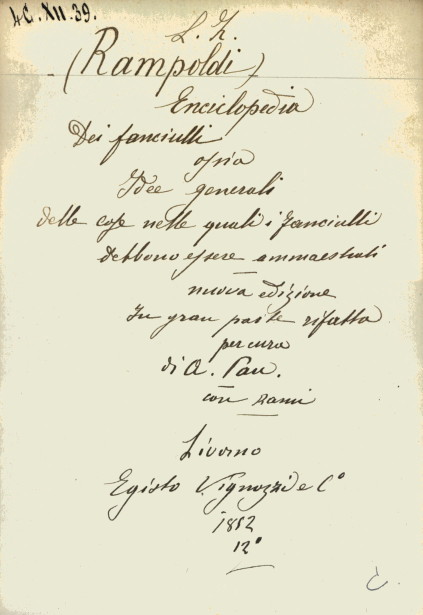 4C. XII. 39.
L. K.
(Rampoldi)
Enciclopedia
Dei fanciulli
ossia
Idee generali
delle cose nelle quali i fanciulli
debbono essere ammaestrati
nuova edizione
In gran parte rifatta
per cura
di A. Pau.
con rami
Livorno
Egisto Vignozzi e C°
1852
12°